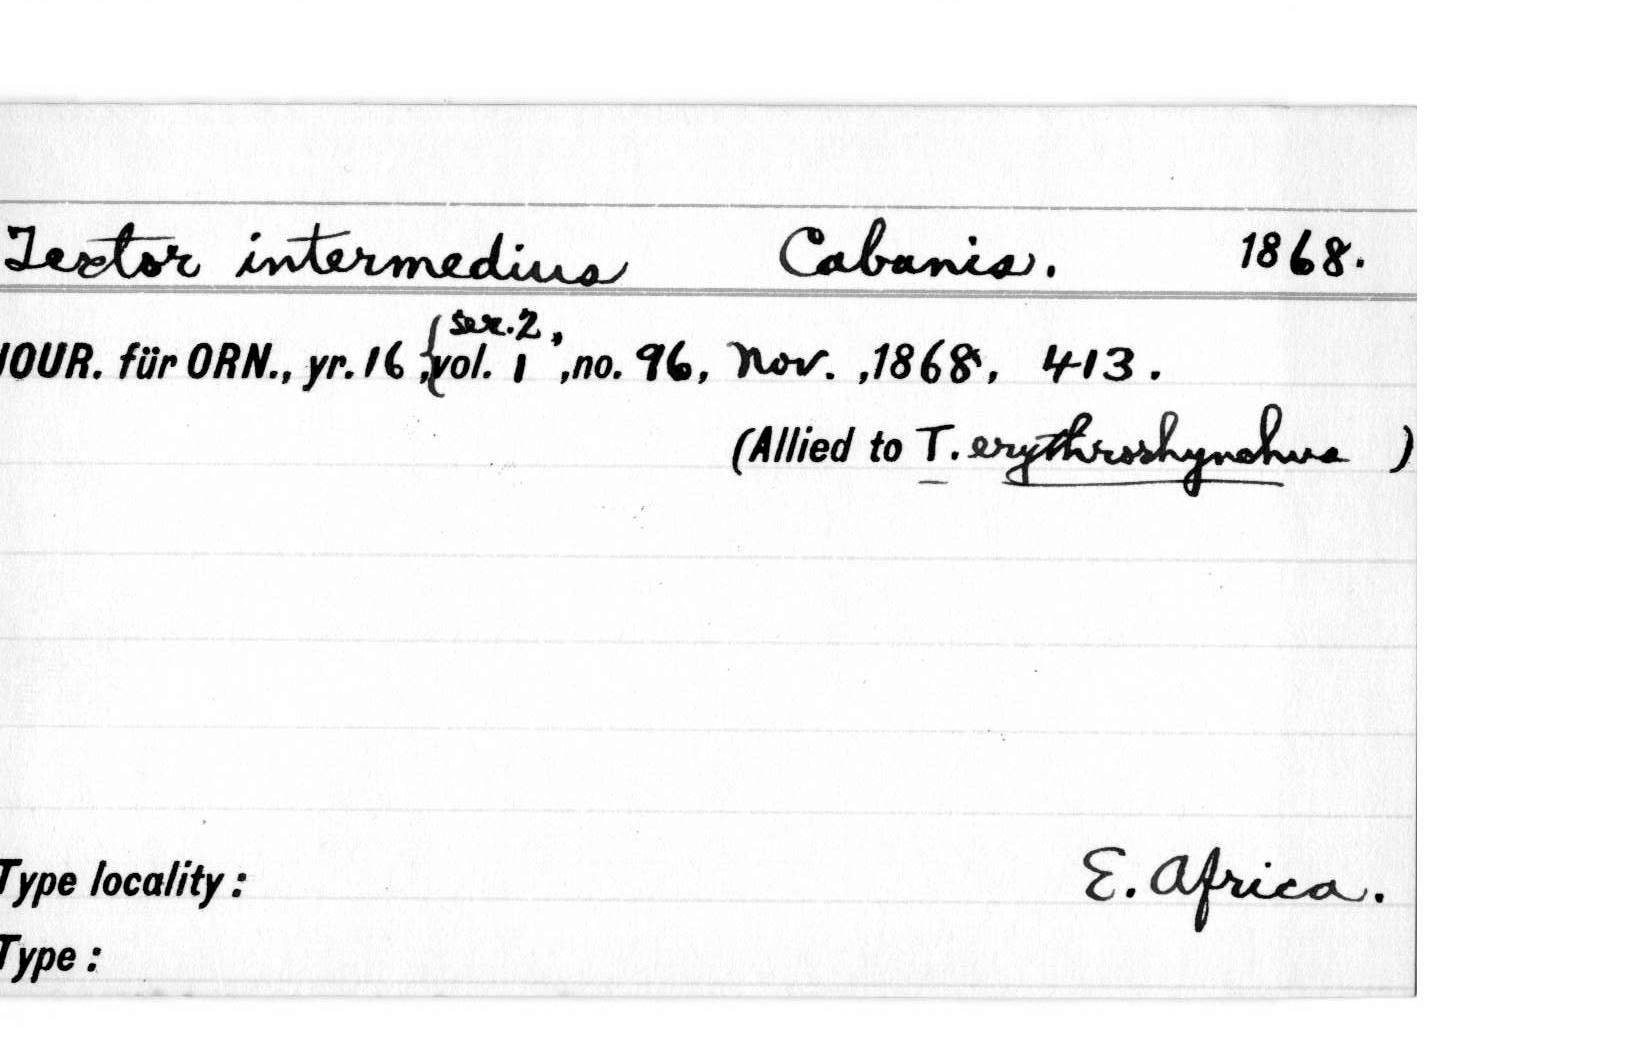 Textor intermedius Cabanis. 1868.
JOUR. für ORN., yr. 16, {ser. 2, vol. 1, no. 96, Nov., 1868, 413.
(Allied to T. erythrorhynchus)
Type locality: E. Africa.
Type: